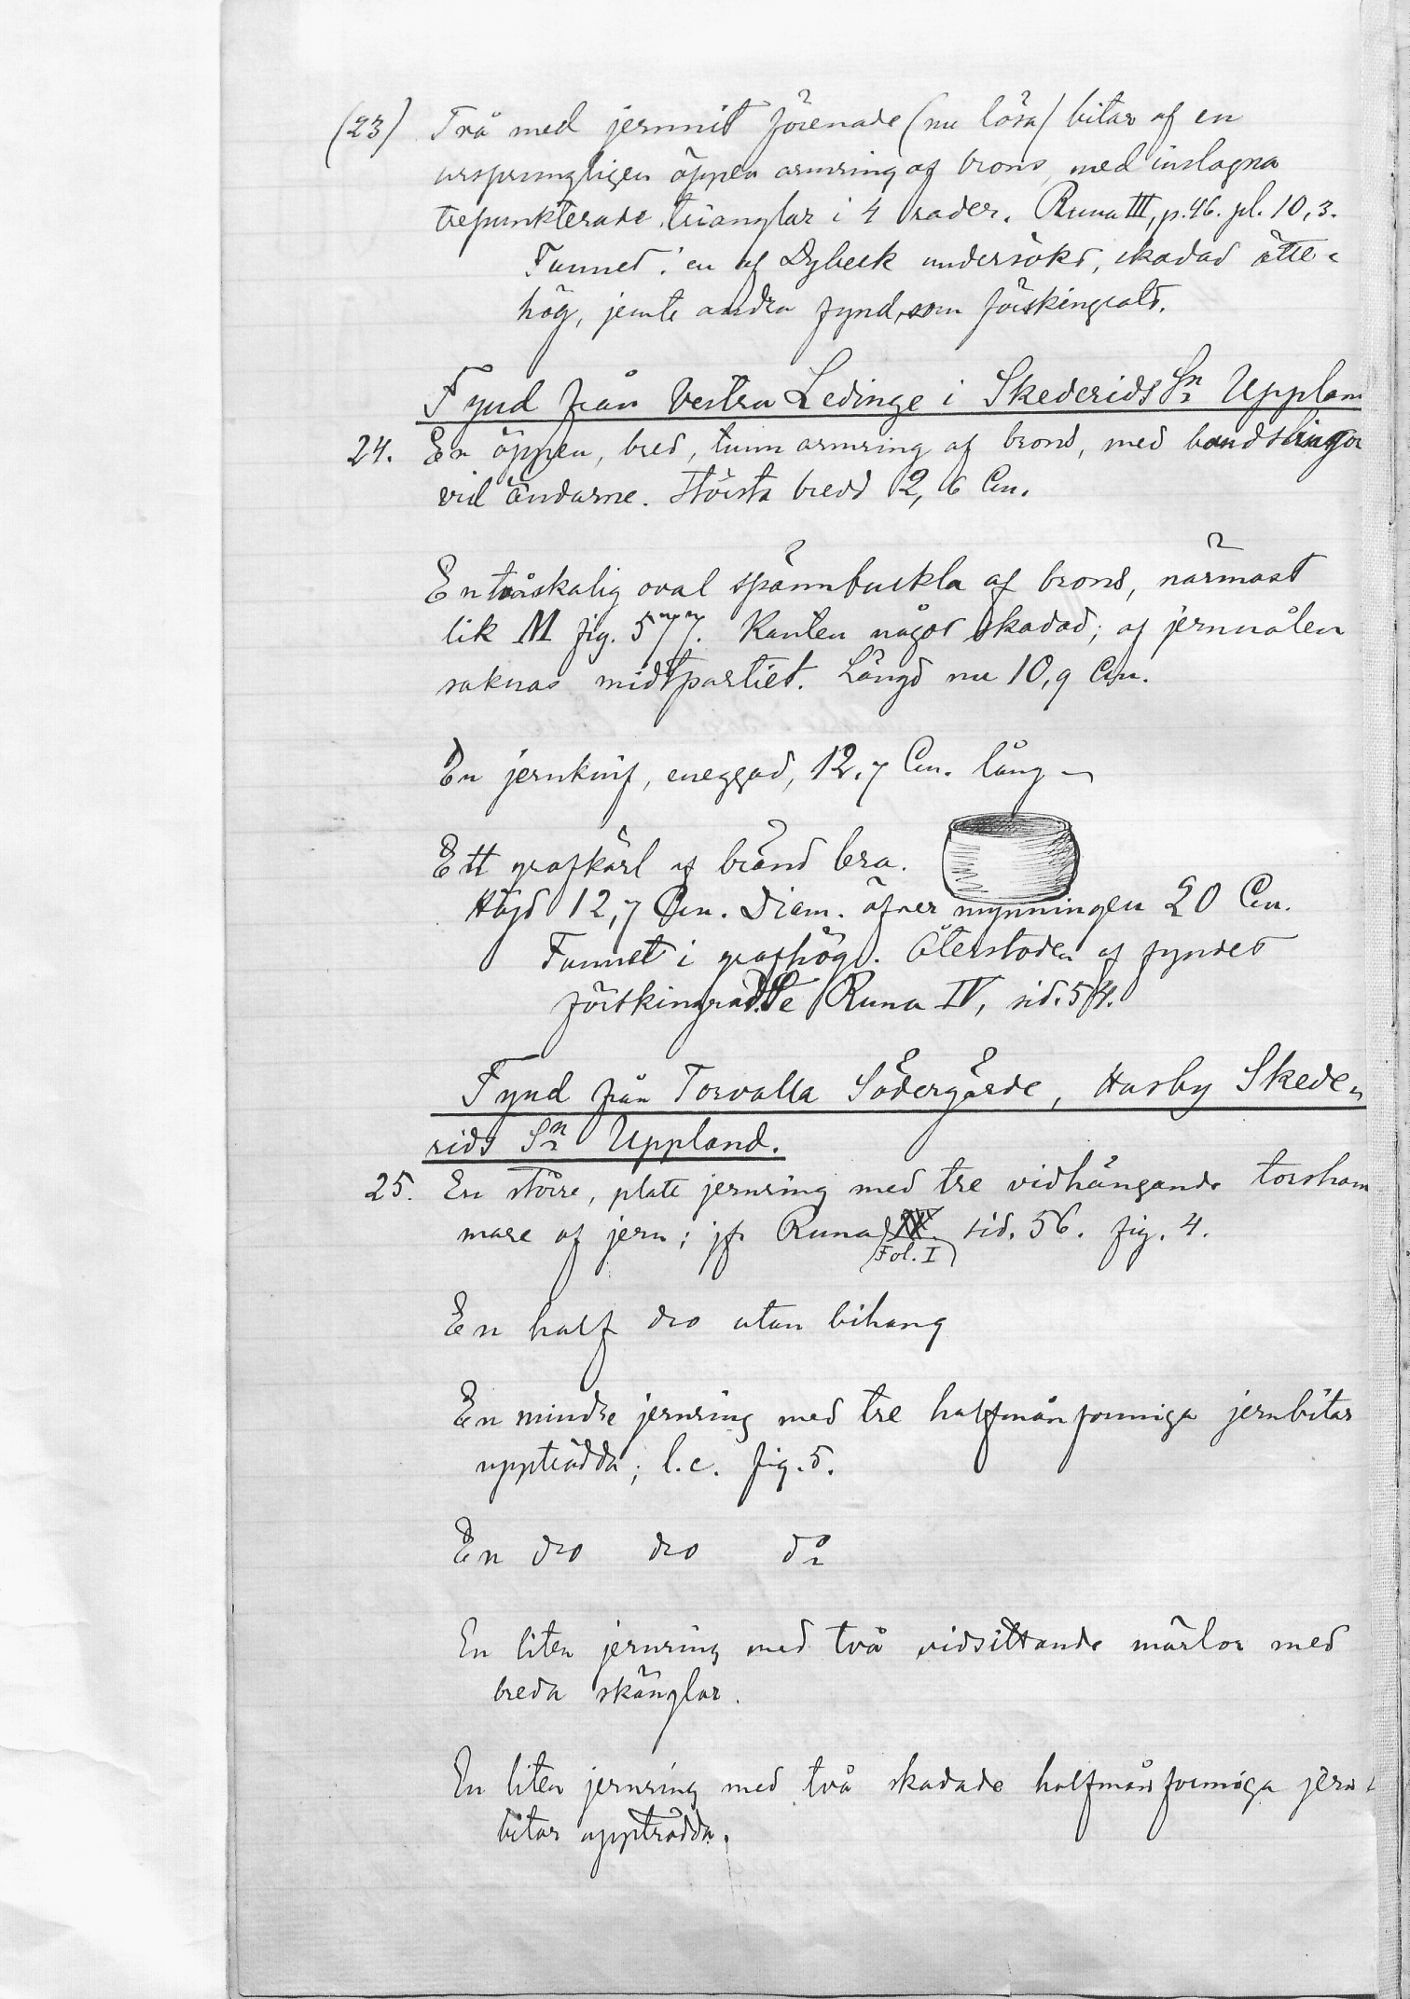 (23) Två med jernnit förenade (nu lösa) bitar af en
ursprungligen öppen armring af brons, med inslagna
trepunkterade trianglar i 4 rader. Runa III, p. 46. pl. 10, 3.
Funnet i en af Dybeck undersökt, skadad ätte-
hög, jemte andra fynd, som förskingrats.
Fynd från Vestra Ledinge i Skederids Sn Upplan
24. En öppen, bred, tunn armring af brons, med bandslingor
vid ändarne. Största bredd 2,6 Cm.
En tvåskalig oval spännbuckla af brons, närmast
lik M fig. 577. Kanten något skadad; af jernnålen
saknas midtpartiet. Längd nu 10,9 Cm.
En jernknif, eneggad, 12,7 Cm. lång
Ett grafkärl af bränd lera.
Höjd 12,7 Cm. Diam. öfver mynningen 20 Cm.
Funnet i grafhög. Återstoden af fyndet
förskingrad. Se Runa IV, sid. 54.
Fynd från Torvalla Södergärde, Husby Skede-
rids Sn Uppland.
25. En större, platt jernring med tre vidhängande torsham
mare af jern; jfr Runa Fol. I sid. 56. fig. 4.
En half dro utan bihang
En mindre jernring med tre halfmånformiga jernbitar
uppträdda; l.c. fig. 5.
En dro dro do
En liten jernring med två vidsittande märlor med
breda skänglar.
En liten jernring med två skadade halfmånformiga jern-
bitar uppträdda.